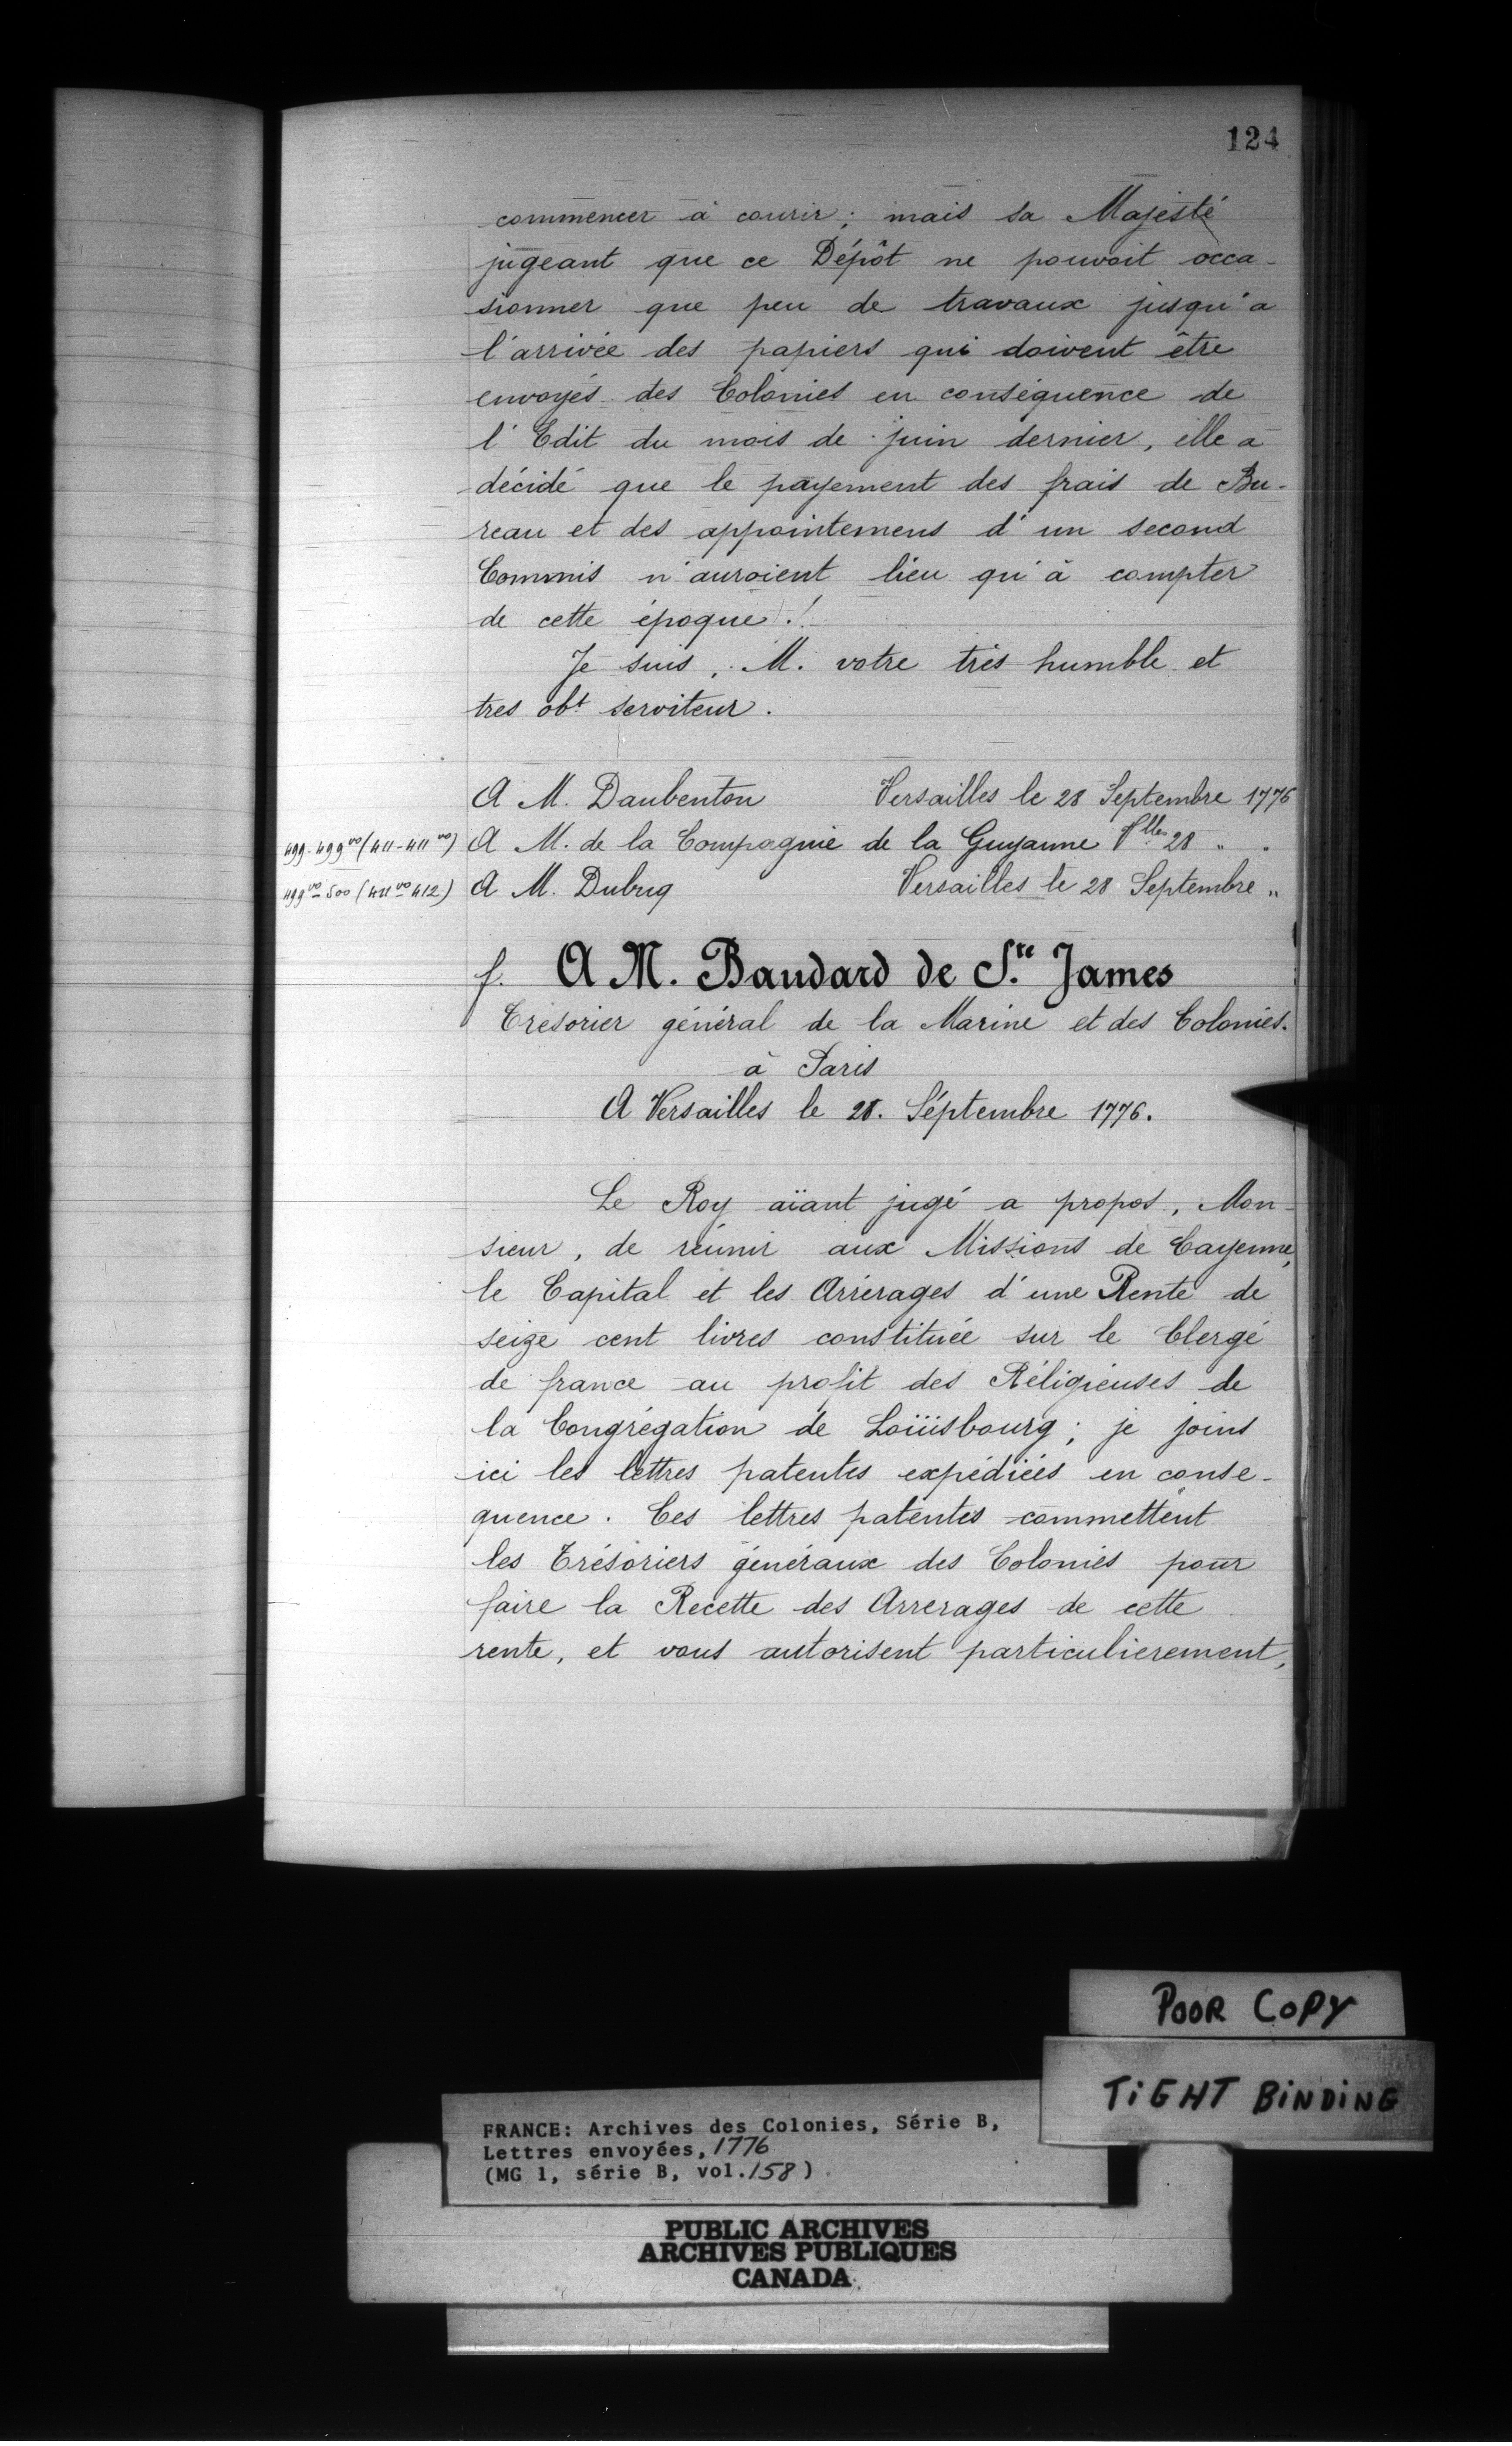 124
commencer à courir; mais sa Majesté
jugeant que ce Dépôt ne pouvoit occa-
sionner que peu de travaux jusqu'a
l'arrivée des papiers qui doivent être
envoyés des Colonies en conséquence de
l'Edit du mois de juin dernier, elle a
décidé que le payement des frais de Bu-
reau et des appointemens d'un second
Commis n'auroient lieu qu'à compter
de cette époque./.
Je suis, M. votre très humble et
tres obt serviteur.
A M. Daubenton Versailles le 28 Septembre 1776
499-499vo (411-411vo) A M. de la Compagnie de la Guyanne Vlles 28 " "
499vo-500 (411vo 412) A M. Dubuq Versailles le 28 Septembre "
f. A M. Baudard de Ste James
Trésorier général de la Marine et des Colonies.
à Paris
A Versailles le 28. Séptembre 1776.
Le Roy aïant jugé a propos, Mon-
sieur, de réunir aux Missions de Cayenne,
le Capital et les Arrérages d'une Rente de
seize cent livres constituée sur le Clergé
de france au profit des Réligieuses de
la Congrégation de Loüisbourg; je joins
ici les lettres patentes expédiées en conse-
quence. Ces lettres patentes commettent
les Trésoriers généraux des Colonies pour
faire la Recette des Arrerages de cette
rente, et vous autorisent particulierement,
POOR COPY
TIGHT BINDING
FRANCE: Archives des Colonies, Série B,
Lettres envoyées, 1776
(MG 1, série B, vol. 158)
PUBLIC ARCHIVES
ARCHIVES PUBLIQUES
CANADA